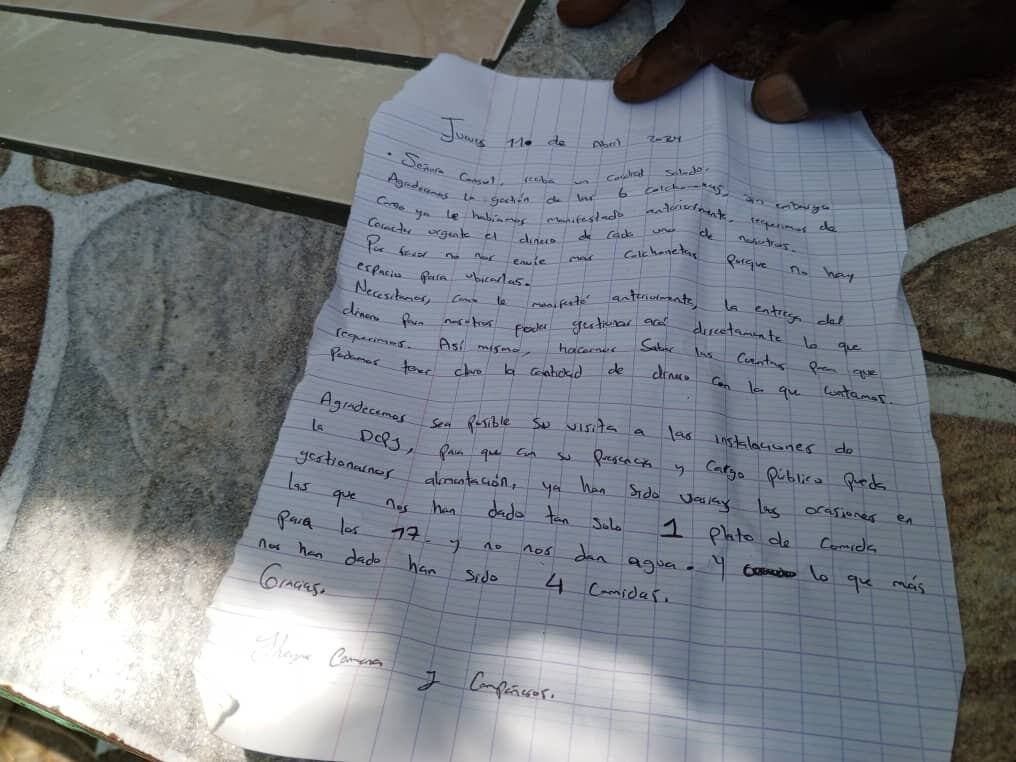 Jueves 11 de Abril 2024
• Señora Consul, reciba un cordial saludo.
Agradecemos la gestión de las 6 colchonetas, sin embargo
Como ya le habíamos manifestado anteriormente, requerimos de
Caracter urgente el dinero de cada uno de nosotros.
Por favor no nos envíe mas Colchonetas porque no hay
espacio para ubicarlas.
Necesitamos, como le manifesté anteriormente, la entrega del
dinero para nosotros poder gestionar acá directamente lo que
requerimos. Así mismo, hacernos saber las cuentas para que
Podamos tener claro la cantidad de dinero con la que contamos.
Agradecemos sea posible su visita a las instalaciones de
la DCPJ, para que con su presencia y cargo público pueda
gestionarnos alimentación, ya han sido varias las ocasiones en
las que nos han dado tan solo 1 plato de comida
para los 17 y no nos dan agua. Y lo que más
nos han dado han sido 4 Comidas.
Gracias.
Carmona
Y Compañeros.